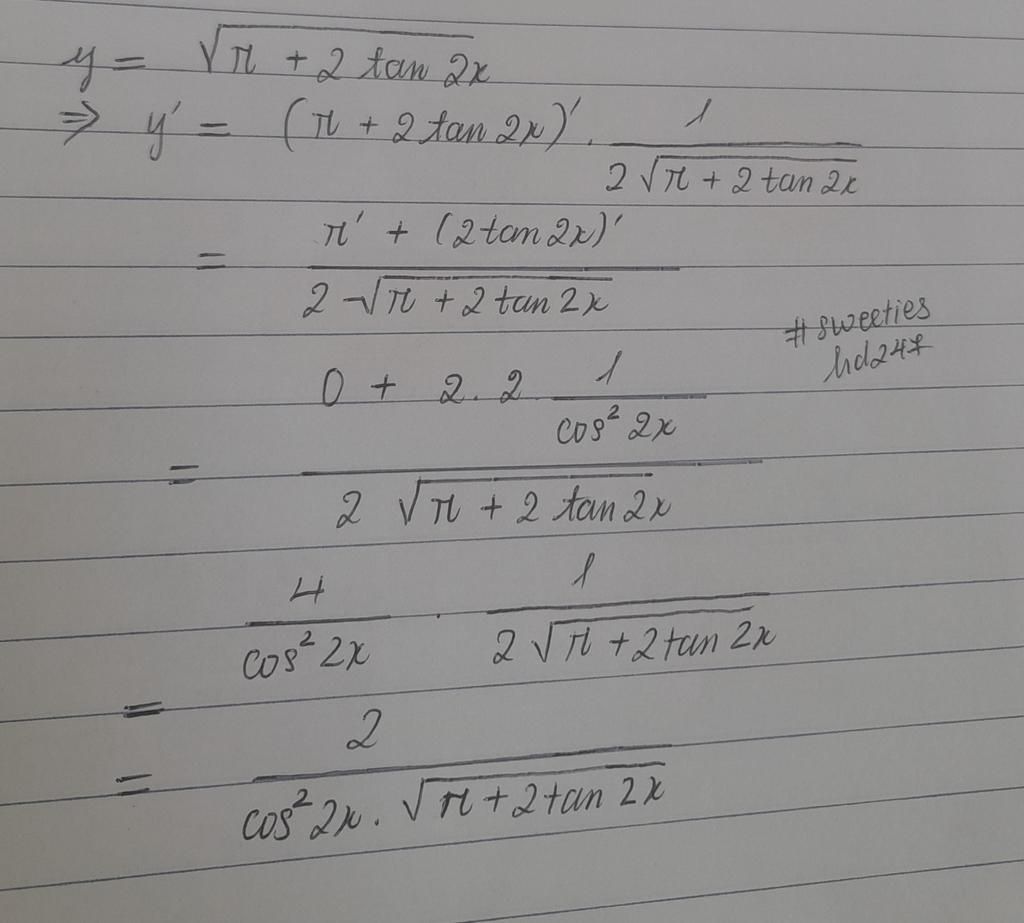 y = √(π + 2 tan 2x)
⇒ y' = (π + 2 tan 2x)' . 1 / (2 √(π + 2 tan 2x))
= (π' + (2 tan 2x)') / (2 √(π + 2 tan 2x))
#sweeties
hd247
= (0 + 2 . 2 1 / (cos² 2x)) / (2 √(π + 2 tan 2x))
= 4 / (cos² 2x) . 1 / (2 √(π + 2 tan 2x))
= 2 / (cos² 2x . √(π + 2 tan 2x))